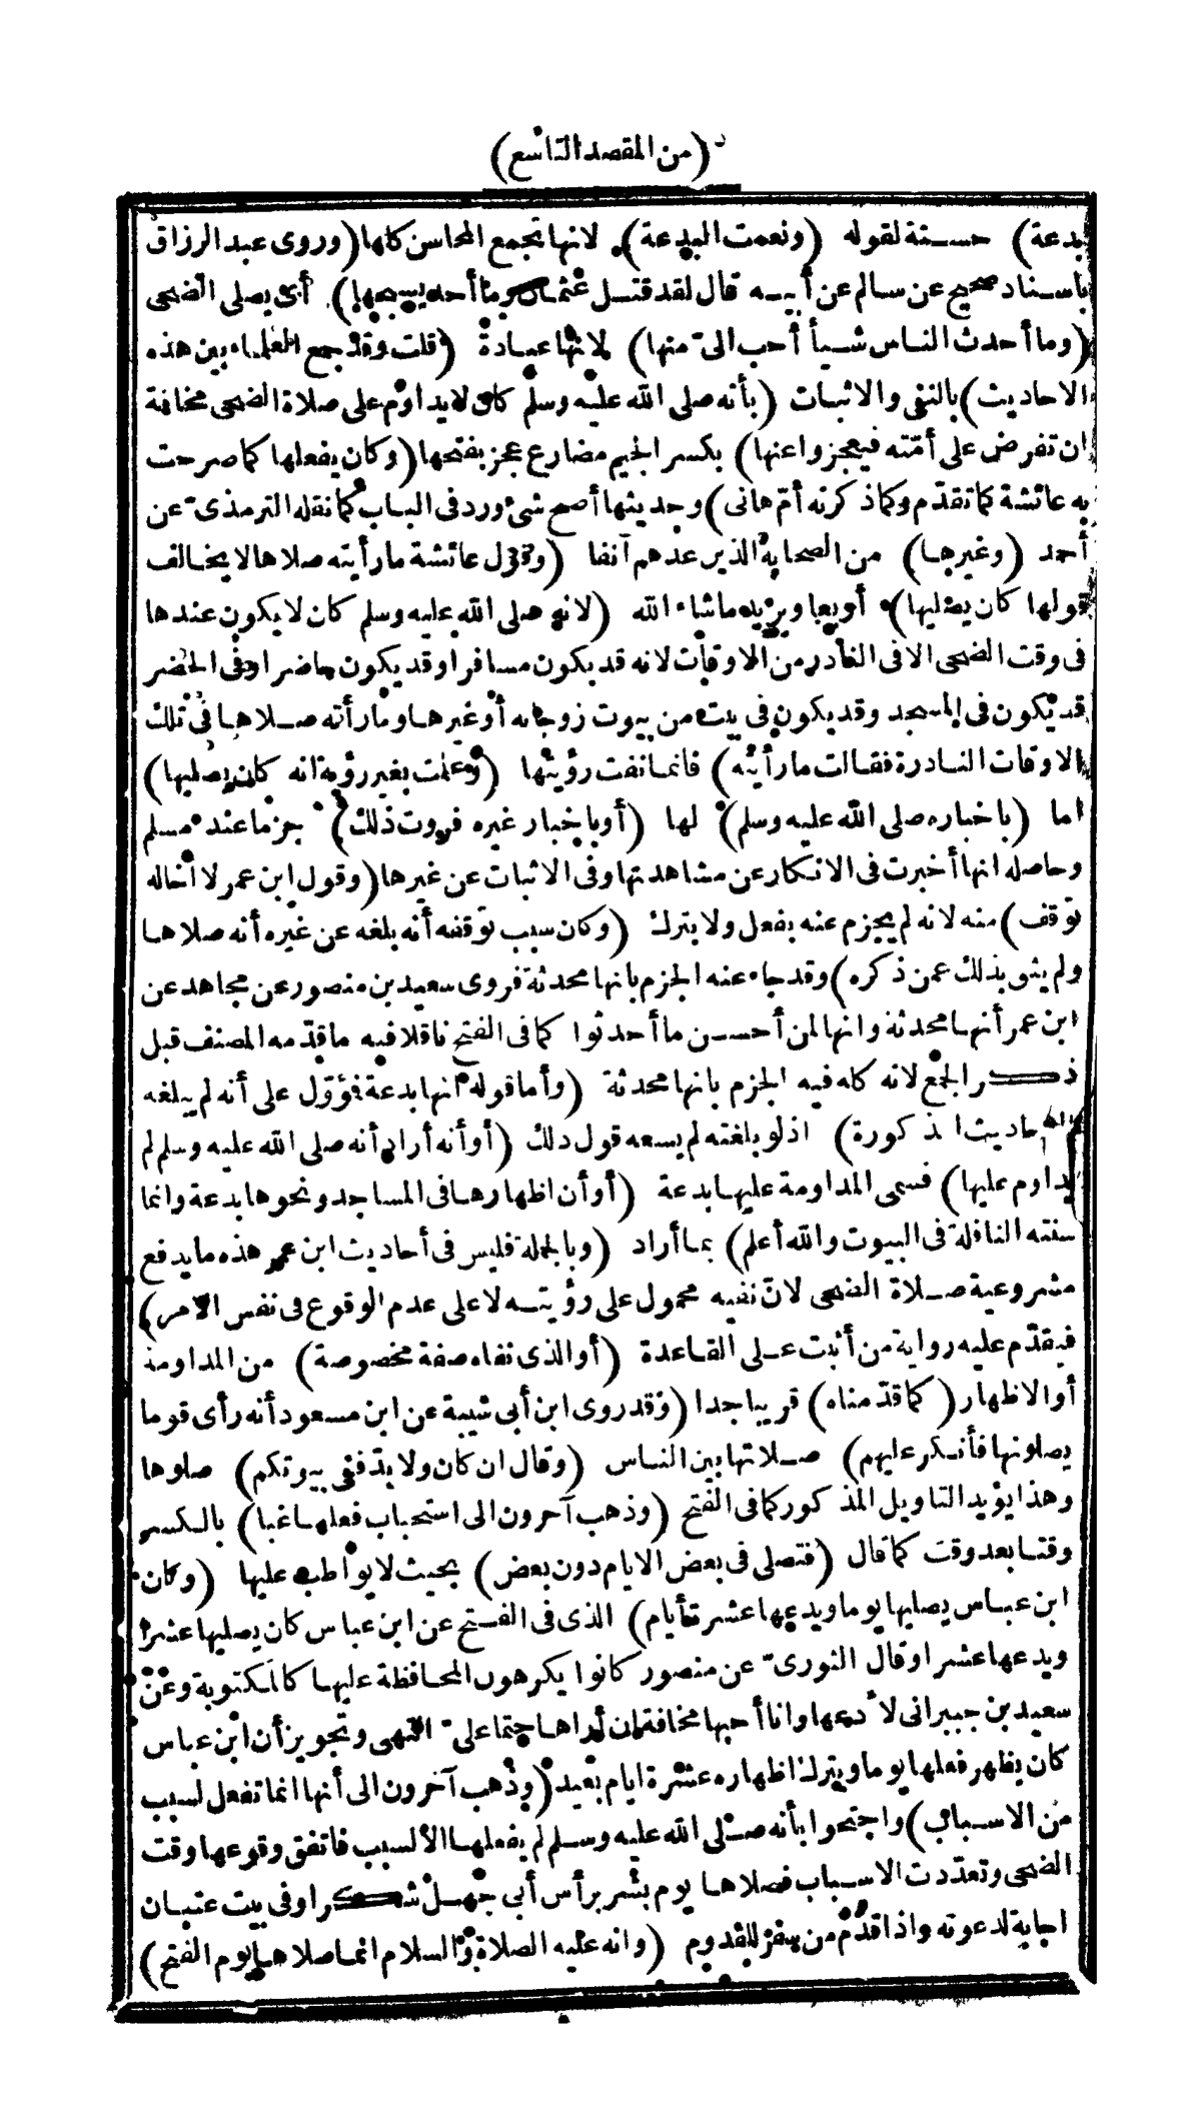 (من المقصد التاسع)
بدعة) حسنة لقوله (ونعمت البدعة) لانها تجمع المحاسن كلها (وروى عبد الرزاق
باسناد صحيح عن سالم عن أبيه قال لقد قتل عثمان وما أحد يسبحها) أى يصلى الضحى
(وما أحدث الناس شيأ أحب الىّ منها) لانها عبادة (قلت وقد جمع العلماء بين هذه
الاحاديث) بالنفى والاثبات (بأنه صلى الله عليه وسلم كان لا يداوم على صلاة الضحى مخافة
ان تفرض على أمّته فيعجزوا عنها) بكسر الجيم مضارع عجز بفتحها (وكان يفعلها كما صرحت
به عائشة كما تقدّم وكما ذكرته أمّ هانى) وحديثها أصح شئ ورد فى الباب كما نقله الترمذىّ عن
أحمد (وغيرها) من الصحابة الذين عدهم آنفا (وقول عائشة ما رأيته صلاها لا يخالف
قولها كان يصليها) أربعا ويزيد ما شاء الله (لانه صلى الله عليه وسلم كان لا يكون عندها
فى وقت الضحى الا فى النادر من الاوقات لانه قد يكون مسافرا وقد يكون حاضرا وفى الحضر
قد يكون فى المسجد وقد يكون فى بيت من بيوت زوجاته أو غيرها وما رأته صلاها فى تلك
الاوقات النادرة فقالت ما رأيته) فانما نفت رؤيتها (وعلمت بغير رؤية انه كان يصليها)
اما (باخباره صلى الله عليه وسلم) لها (أو باخبار غيره فروت ذلك) جزما عند مسلم
وحاصله انها أخبرت فى الانكار عن مشاهدتها وفى الاثبات عن غيرها (وقول ابن عمر لا أخاله
توقف) منه لانه لم يجزم عنه بفعل ولا بترك (وكان سبب توقفه أنه بلغه عن غيره أنه صلاها
ولم يثق بذلك عمن ذكره) وقد جاء عنه الجزم بانها محدثة فروى سعيد بن منصور عن مجاهد عن
ابن عمر أنها محدثة وانها لمن أحسن ما أحدثوا كما فى الفتح ناقلا فيه ما قدّمه المصنف قبل
ذكر الجمع لانه كله فيه الجزم بانها محدثة (وأما قوله انها بدعة فؤوّل على أنه لم يبلغه
الاحاديث المذكورة) اذ لو بلغته لم يسعه قول ذلك (أو أنه أراد أنه صلى الله عليه وسلم لم
يداوم عليها) فسمى المداومة عليها بدعة (أو أن اظهارها فى المساجد ونحوها بدعة وانما
سنته النافلة فى البيوت والله أعلم) بما أراد (وبالجملة فليس فى أحاديث ابن عمر هذه ما يدفع
مشروعية صلاة الضحى لانّ نفيه محمول على رؤيته لا على عدم الوقوع فى نفس الامر)
فيقدّم عليه رواية من أثبت على القاعدة (أو الذى نفاه صفة مخصوصة) من المداومة
أو الاظهار (كما قدّمناه) قريبا جدا (وقد روى ابن أبى شيبة عن ابن مسعود أنه رأى قوما
يصلونها فأنكر عليهم) صلاتها بين الناس (وقال ان كان ولا بدّ ففى بيوتكم) صلوها
وهذا يؤيد التاويل المذكور كما فى الفتح (وذهب آخرون الى استحباب فعلها غبا) بالكسر
وقتا بعد وقت كما قال (فتصلى فى بعض الايام دون بعض) بحيث لا يواظب عليها (وكان
ابن عباس يصليها يوما ويدعها عشرة أيام) الذى فى الفتح عن ابن عباس كان يصليها عشرا
ويدعها عشرا وقال الثورىّ عن منصور كانوا يكرهون المحافظة عليها كالمكتوبة وعن
سعيد بن جبير انى لا دعها وانا أحبها مخافة ان أراها حتما علىّ انتهى وتجويز أن ابن عباس
كان يظهر فعلها يوما ويترك اظهاره عشرة ايام بعيد (وذهب آخرون الى أنها انما تفعل لسبب
من الاسباب) واحتجوا بأنه صلى الله عليه وسلم لم يفعلها الا لسبب فاتفق وقوعها وقت
الضحى وتعدّدت الاسباب فصلاها يوم بشر برأس أبى جهل شكرا وفى بيت عتبان
اجابة لدعوته واذا قدم من سفر للقدوم (وانه عليه الصلاة والسلام انما صلاها يوم الفتح)